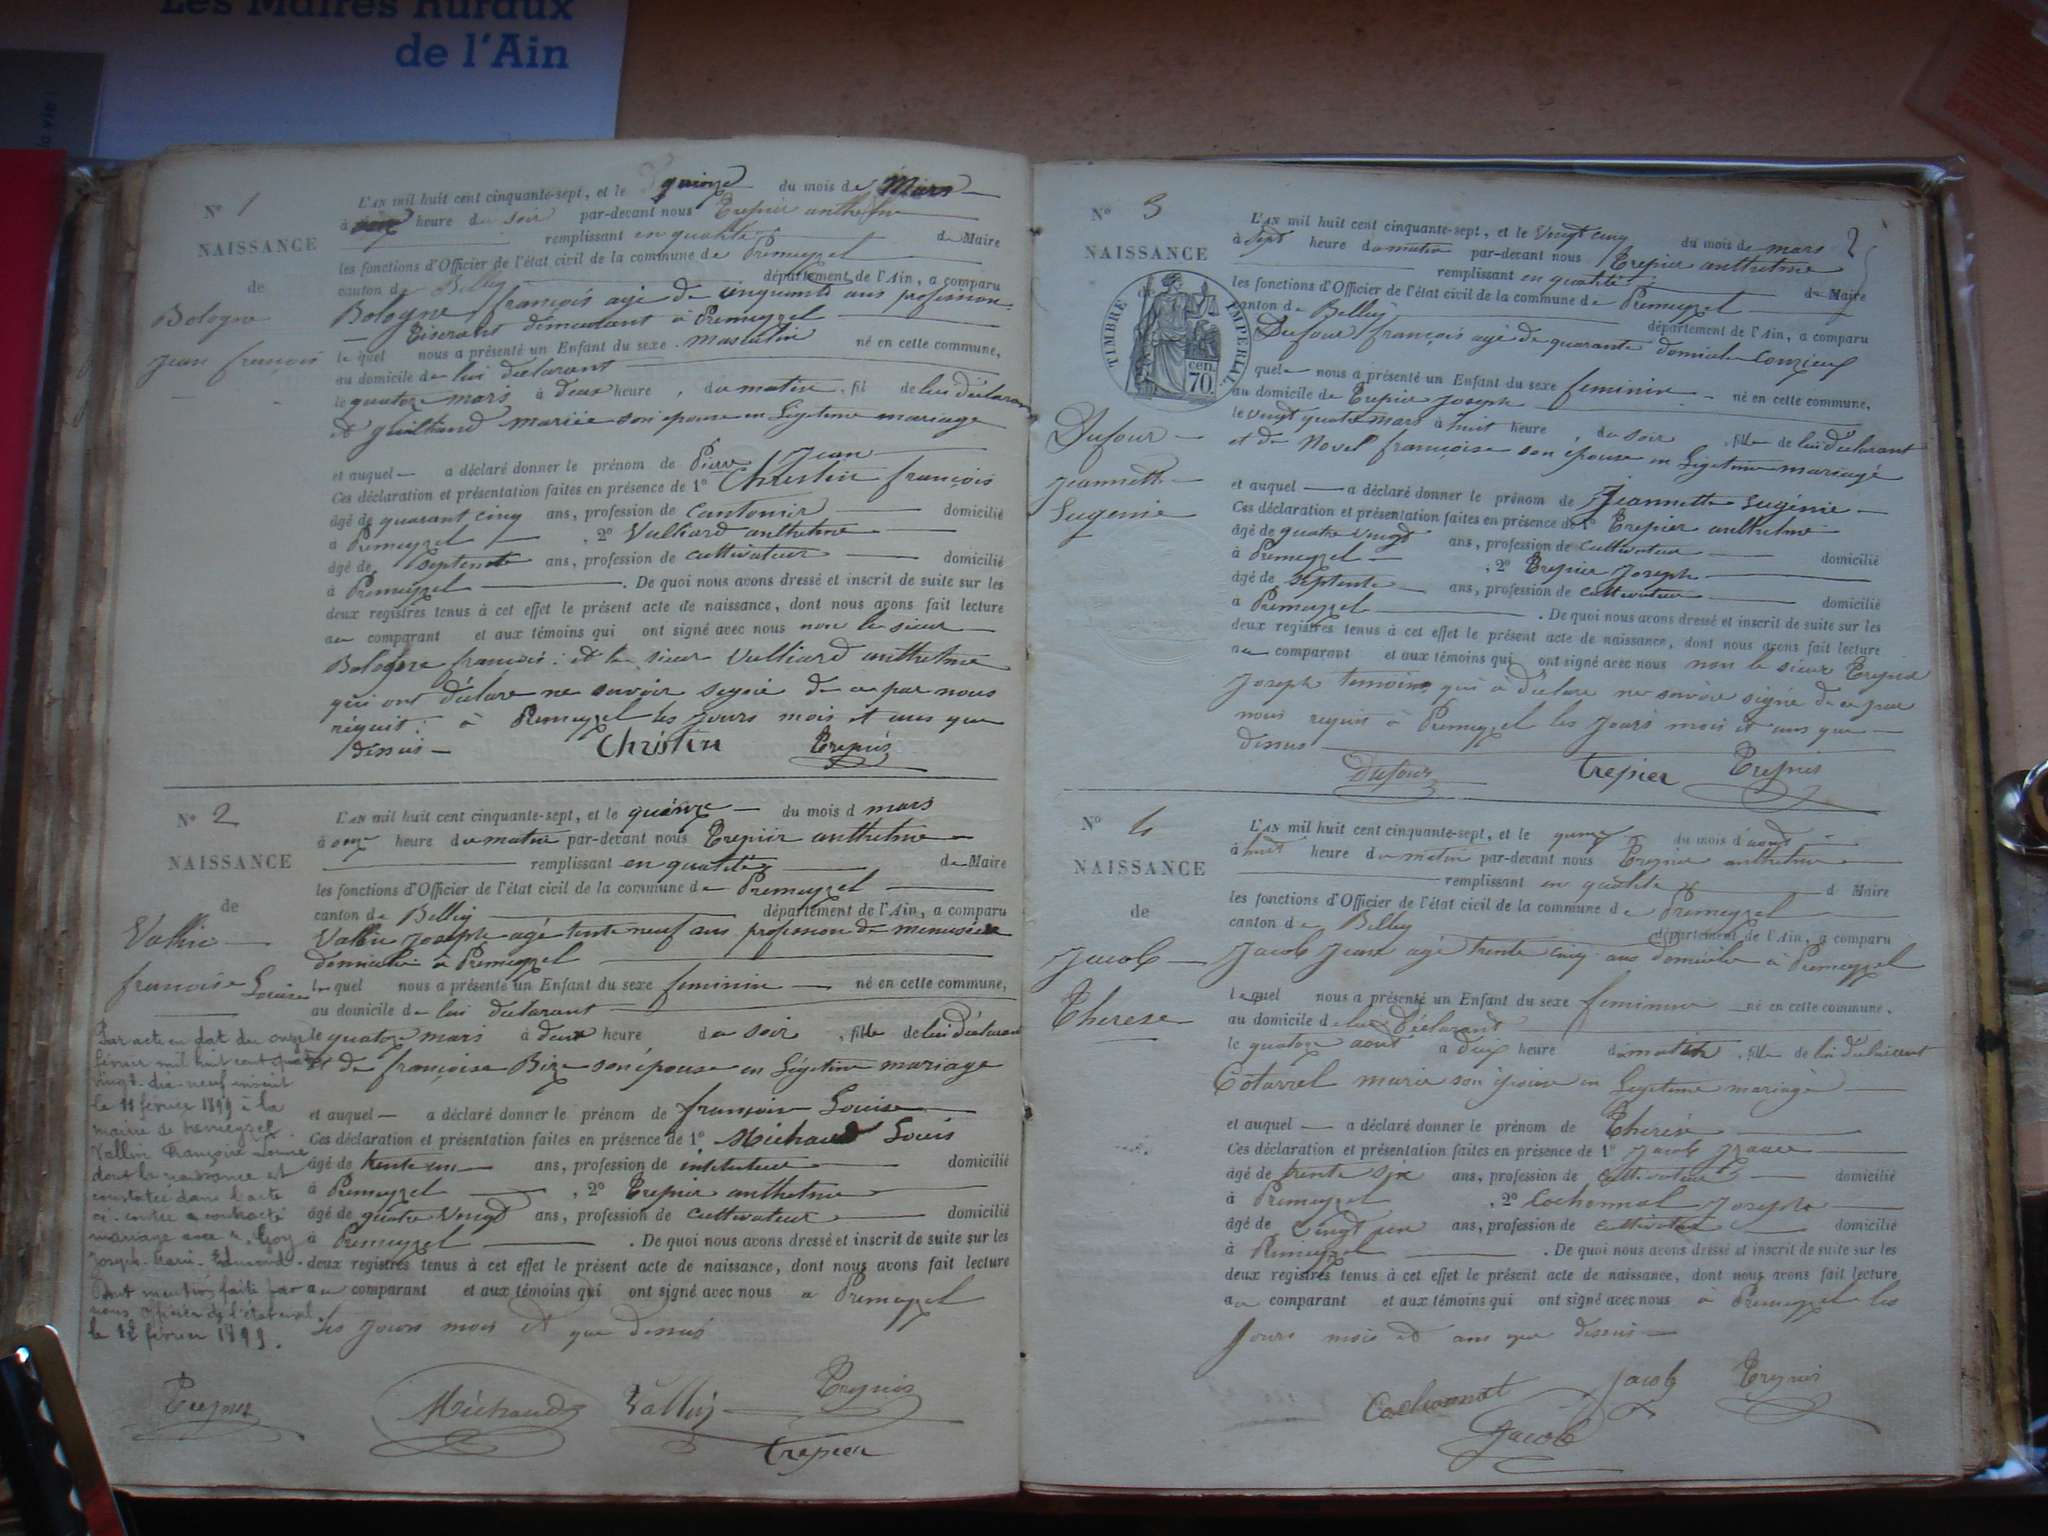 Les Maires Ruraux
de l'Ain
N° 1
NAISSANCE
de
Bologne
Jean françois
L'AN mil huit cent cinquante-sept, et le quinze du mois de Mars
à heure du soir par-devant nous Trepier anthelme
remplissant en qualité de Maire
les fonctions d'Officier de l'état civil de la commune de Premeyzel
canton de Belley département de l'Ain, a comparu
Bologne françois agé de cinquante ans profession
Tiserant démeurant à Premeyzel
le quel nous a présenté un Enfant du sexe masculin né en cette commune,
au domicile de lui déclarant
le quatorze mars à deux heure, du matin, fil de lui déclarant
et guilland mariée son épouse en Légitime mariage
et auquel a déclaré donner le prénom de Pierre Jean
Ces déclaration et présentation faites en présence de 1° Christin françois
âgé de quarant cinq ans, profession de cantonier domicilié
à Premeyzel, 2° Vulliard anthelme
âgé de septente ans, profession de cultivateur domicilié
à Premeyzel. De quoi nous avons dressé et inscrit de suite sur les
deux registres tenus à cet effet le présent acte de naissance, dont nous avons fait lecture
au comparant et aux témoins qui ont signé avec nous non le sieur
Bologne françois : et le sieur Vulliard anthelme
qui ont déclare ne savoir signé de ce par nous
réquit : à Premeyzel les jours mois et ans que
dessus
Christin Trepier
N° 2
NAISSANCE
de
Vallin
francoise Louise
L'AN mil huit cent cinquante-sept, et le quinze du mois d mars
à onze heure du matin par-devant nous Trepier anthelme
remplissant en qualité de Maire
les fonctions d'Officier de l'état civil de la commune de Premeyzel
canton de Belley département de l'Ain, a comparu
Vallin Joseph agé tente neuf ans profession de menusier
domicilié à Premeyzel
le quel nous a présenté un Enfant du sexe feminin né en cette commune,
au domicile de lui déclarant
le quatorze mars à deux heure du soir, fille de lui déclarant
et de françoise Bize son épouse en Légitime mariage
et auquel a déclaré donner le prénom de françoise Louise
Ces déclaration et présentation faites en présence de 1° Michaud Louis
âgé de tente un ans, profession de instituteur domicilié
à Premeyzel, 2° Trepier anthelme
âgé de quatre vingt ans, profession de cultivateur domicilié
à Premeyzel. De quoi nous avons dressé et inscrit de suite sur les
deux registres tenus à cet effet le présent acte de naissance, dont nous avons fait lecture
au comparant et aux témoins qui ont signé avec nous a Premeyzel
Les jours mois et que dessus
Par acte en dat du onze
février mil huit cent quatre
vingt-dix-neuf inscrit
le 11 février 1899 à la
mairie de Premeyzel
Vallin Françoise Louise
dont la naissance est
constatée dans l'acte
ci-contre a contracté
mariage avec Goy
Joseph Marie Edmond.
Dont mention faite par
nous officier de l'état civil
le 12 février 1899.
Trepier Michaud Vallin Trepier
trepier
N° 3
NAISSANCE
de
TIMBRE IMPERIAL
70 cen.
Dufour
Jeannette
Eugénie
2
L'AN mil huit cent cinquante-sept, et le vingt cinq du mois de mars
à sept heure du matin par-devant nous Trepier anthelme
remplissant en qualité de Maire
les fonctions d'Officier de l'état civil de la commune de Premeyzel
canton de Belley département de l'Ain, a comparu
Dufour françois agé de quarante domicilié Conzieu
quel nous a présenté un Enfant du sexe feminin né en cette commune,
au domicile de Trepier Joseph
le vingt quatre mars à huit heure, du soir, fille de lui déclarant
et de Novel francoise son épouse en Légetime mariage
et auquel a déclaré donner le prénom de Jeannette Eugénie
Ces déclaration et présentation faites en présence de 1° Trepier anthelme
âgé de quatre vingt ans, profession de cultivateur domicilié
à Premeyzel, 2° Trepier Joseph
âgé de septente ans, profession de cultivateur domicilié
à Premeyzel. De quoi nous avons dressé et inscrit de suite sur les
deux registres tenus à cet effet le présent acte de naissance, dont nous avons fait lecture
au comparant et aux témoins qui ont signé avec nous non le sieur Trepier
Joseph temoins qui a déclare ne savoir signé de ce par
nous requit à Premeyzel les jours mois et ans que
dessus
Dufour trepier Trepier
N° 4
NAISSANCE
de
Jacob
Therese
L'AN mil huit cent cinquante-sept, et le quinze du mois d'aout
à huit heure du matin par-devant nous Trepier anthelme
remplissant en qualité d Maire
les fonctions d'Officier de l'état civil de la commune de Premeyzel
canton de Belley département de l'Ain, a comparu
Jacob Jean agé trente cinq ans domicilié à Premeyzel
le quel nous a présenté un Enfant du sexe feminin né en cette commune.
au domicile de lui déclarant
le quatorze aout a dix heure du matin, fille de lui déclarant
Cotarrel marie son épouse en Legetime mariage
et auquel a déclaré donner le prénom de Therése
Ces déclaration et présentation faites en présence de 1° Jacob
âgé de trente six ans, profession de cultivateur domicilié
à Premeyzel, 2° Cochonnat Joseph
âgé de vingt un ans, profession de cultivateur domicilié
à Premeyzel. De quoi nous avons dressé et inscrit de suite sur les
deux registres tenus à cet effet le présent acte de naissance, dont nous avons fait lecture
au comparant et aux témoins qui ont signé avec nous à Premeyzel les
Jours mois et ans que dessus
Cochonnat Jacob Trepier
Jacob